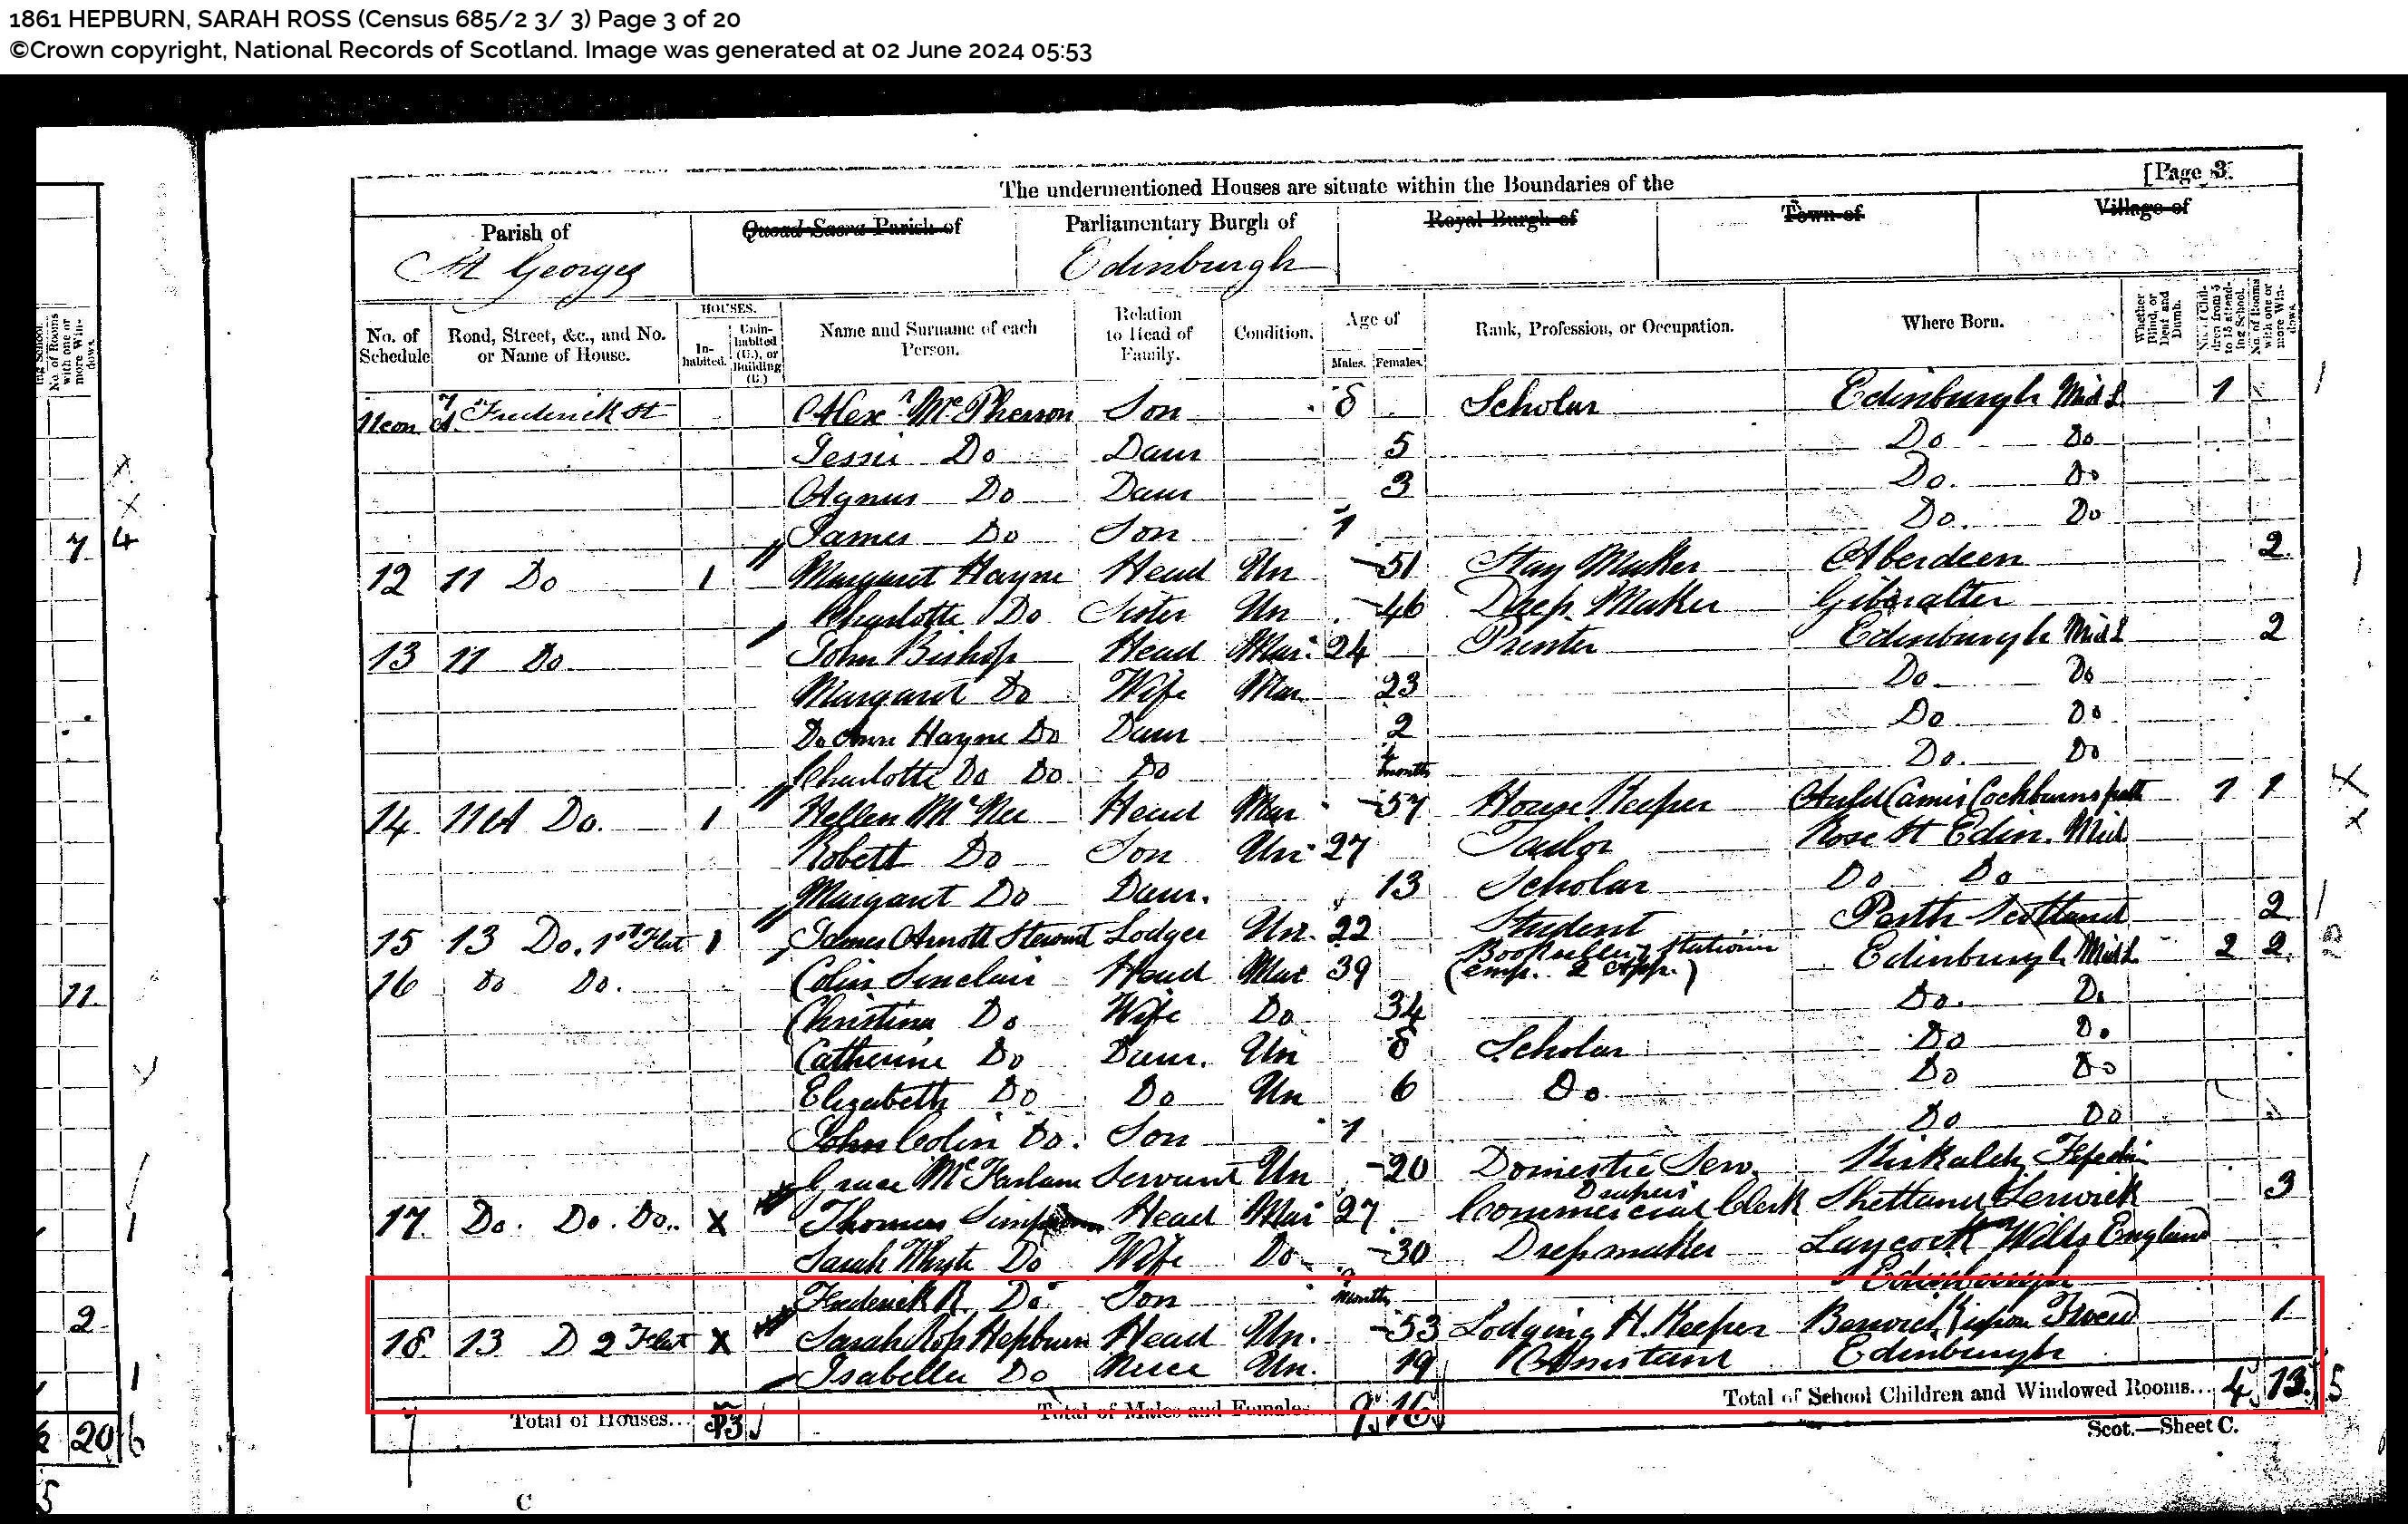 1861 HEPBURN, SARAH ROSS (Census 685/2 3/ 3) Page 3 of 20
©Crown copyright, National Records of Scotland. Image was generated at 02 June 2024 05:53
[Page 3.
The undermentioned Houses are situate within the Boundaries of the
Parish of Quoad Sacra Parish of Parliamentary Burgh of Royal Burgh of Town of Village of
St Georges Edinburgh
No. of Schedule Road, Street, &c., and No. or Name of House. HOUSES. In-habited. Unin-habited (U.), or Building (B.) Name and Surname of each Person. Relation to Head of Family. Condition. Age of Males. Females. Rank, Profession, or Occupation. Where Born. Whether Blind, or Deaf and Dumb. No. of Chil-dren from 5 to 15 attend-ing School. No. of Rooms with one or more Win-dows.
11con Frederick St Alexr McPherson Son 8 Scholar Edinburgh Mid L 1
Jessie Do Daur 5 Do Do
Agnus Do Daur 3 Do. Do
James Do Son 1 Do. Do
12 11 Do 1 Margaret Hayne Head Un 51 Stay Maker Aberdeen 2
Charlotte Do Sister Un 46 Dress Maker Gibralter
13 11 Do John Bishop Head Mar. 24 Printer Edinburgh Mid L 2
Margaret Do Wife Mar 23 Do Do
Do Ann Hayne Do Daur 2 Do Do
Charlotte Do Do Do 4 months Do. Do
14 11A Do. 1 Hellen McNee Head Mar 57 House Keeper Cockburnspath 1 1
Robett Do Son Un 27 Tailor Rose St Edin. Mid
Margaret Do Daur. 13 Scholar Do Do
15 13 Do. 1st Flat 1 James Arnott Stewart Lodger Un. 22 Student Perth Scotland 2
16 Do Do. Colin Sinclair Head Mar 39 Bookseller & Stationer (emp. 2 App.) Edinburgh Mid L 2 2
Christina Do Wife Do 34 Do. Do
Catherine Do Daur. Un 8 Scholar Do Do
Elizabeth Do Do Un 6 Do Do Do
John Colin Do. Son 1 Do Do
Grace McFarlane Servant Un 20 Domestic Serv. Kirkaldy
17 Do. Do. Do. X Thomas Simpson Head Mar 27 Drapers Commercial Clerk Shetland Lerwick 3
Sarah Whyte Do Wife Do 30 Dressmaker Laycock Wilts England
Frederick R. Do Son months Edinburgh
18 13 D 2 Flat X Sarah Ross Hepburn Head Un. 53 Lodging H. Keeper Berwick upon Tweed 1
Isabella Do Niece Un. 19 Assistant Edinburgh
Total of Houses... 3 Total of Males and Females 9 16 Total of School Children and Windowed Rooms... 4 13 5
Scot.—Sheet C.
C